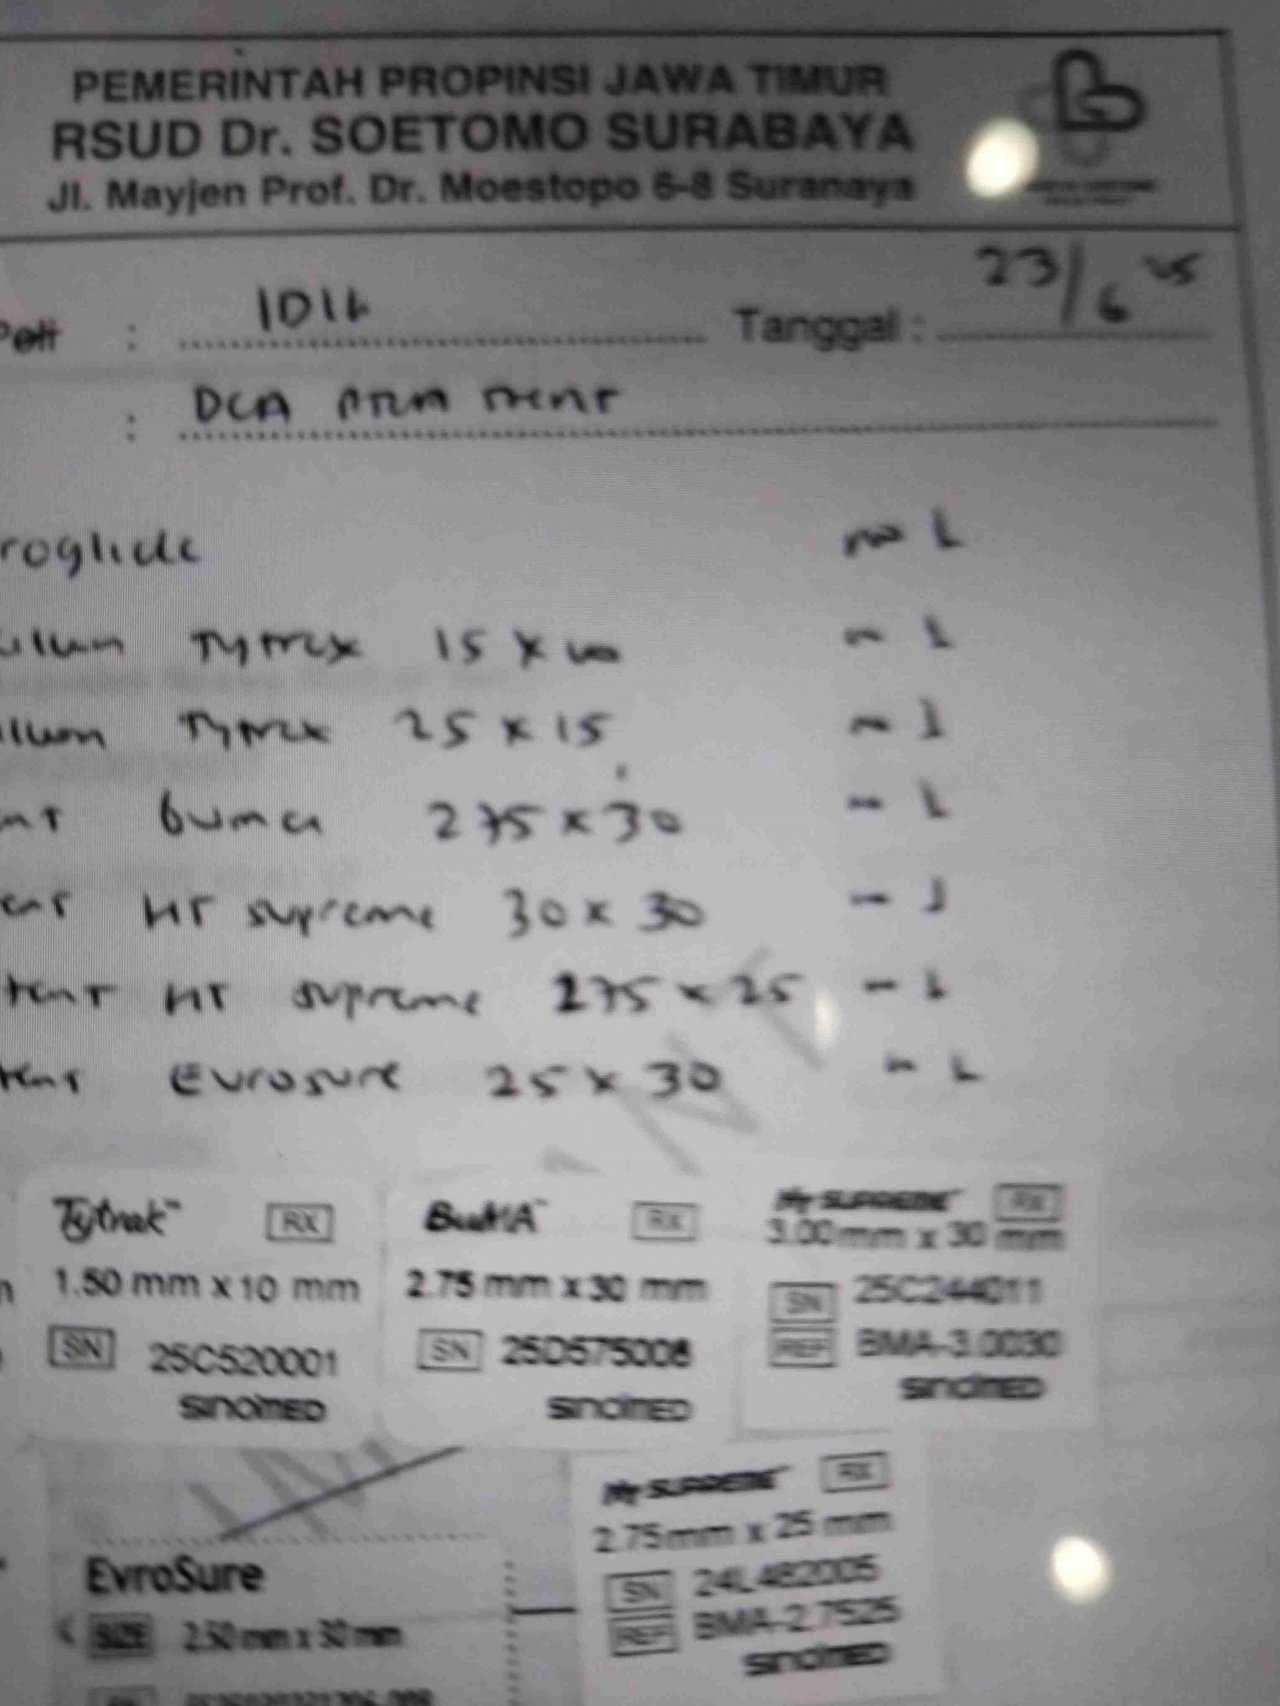 PEMERINTAH PROPINSI JAWA TIMUR
RSUD Dr. SOETOMO SURABAYA
Jl. Mayjen Prof. Dr. Moestopo 6-8 Suranaya
: IDIK Tanggal : 23/6 25
: DCA
roglide 1
Tytrax 15 x 1
Tytrax 25 x 15 1
buma 275 x 30 1
HT supreme 30 x 30 1
stent HT supreme 275 x 25 1
Evrosure 25 x 30 1
Tytrak™ RX
1.50 mm x 10 mm
SN 25C520001
SINOMED
BuMA™ RX
2.75 mm x 30 mm
SN 25D575008
SINOMED
HT SUPREME™ RX
3.00 mm x 30 mm
SN 25C244011
REF BMA-3.0030
SINOMED
EvroSure
SIZE 2.50 mm x 30 mm
HT SUPREME™ RX
2.75 mm x 25 mm
SN 24L482005
REF BMA-2.7525
SINOMED